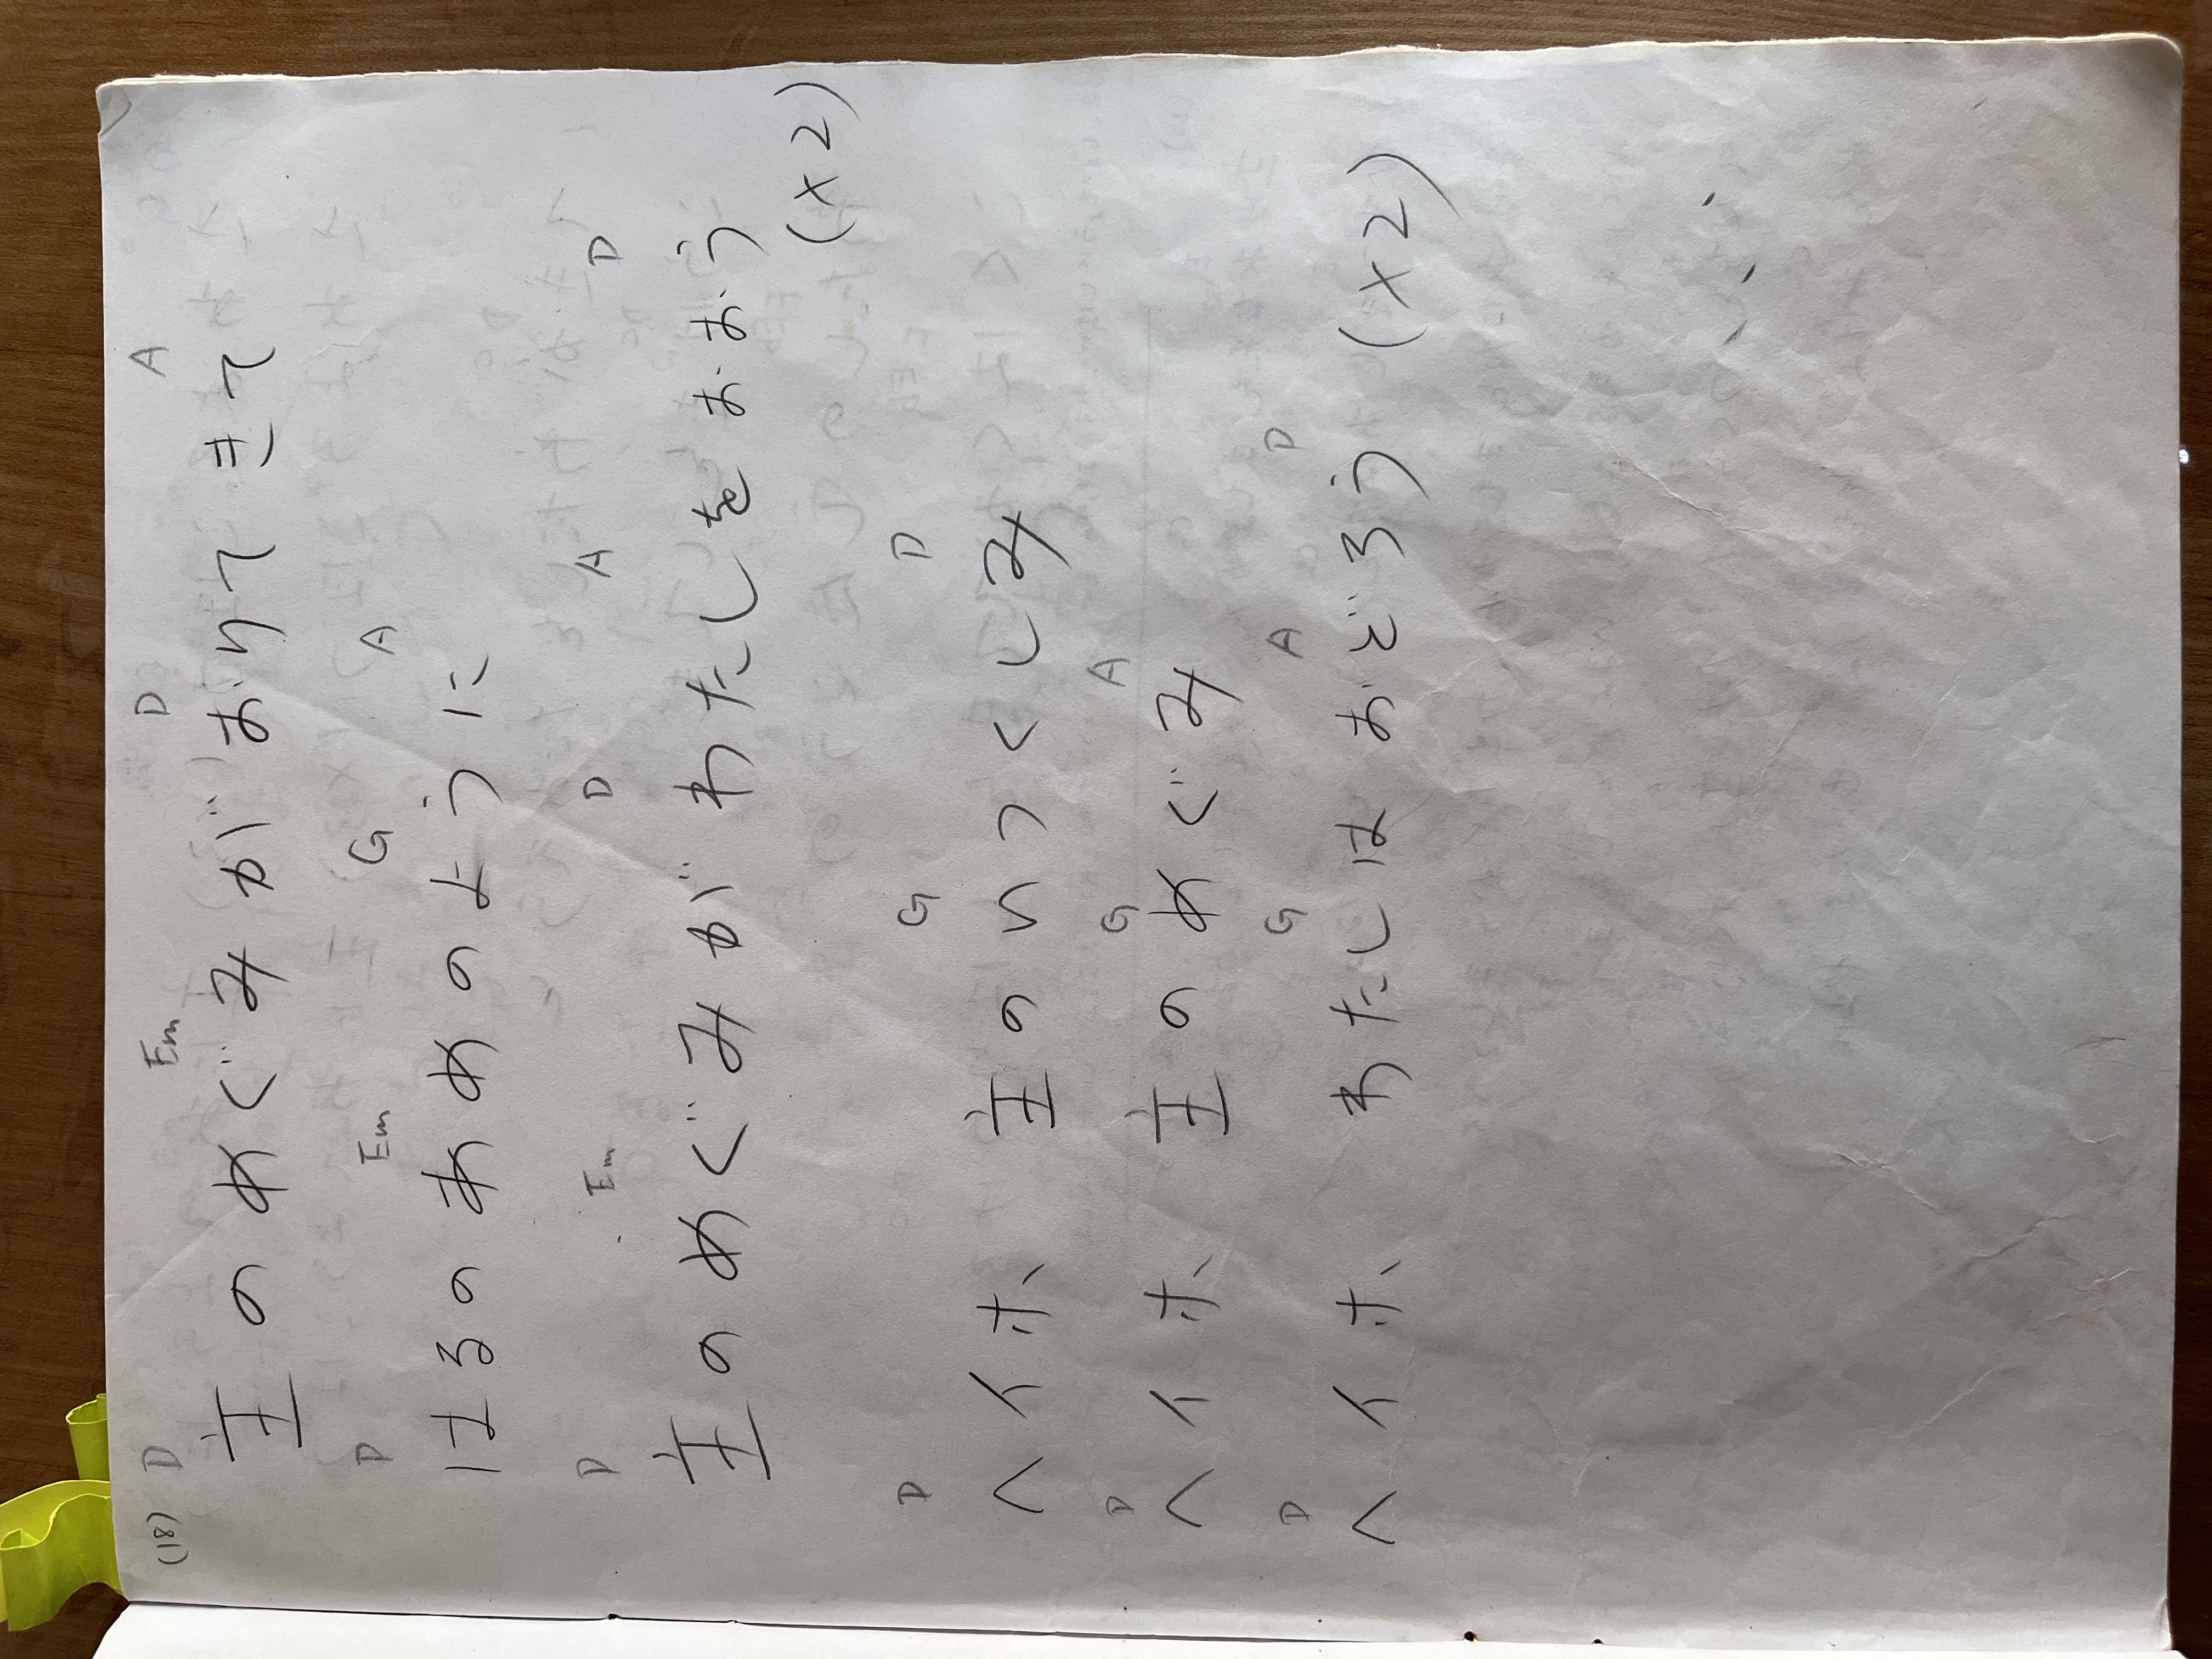 (18) D Em D A
主のめぐみが おりて きて
D Em G A
はるの あめの ように
D Em D A D
主のめぐみが わたしを おおう
(x2)
D G D
ヘイホ、 主の いつくしみ
D G A
ヘイホ、 主の めぐみ
D G A D
ヘイホ、 わたしは おどろう (x2)